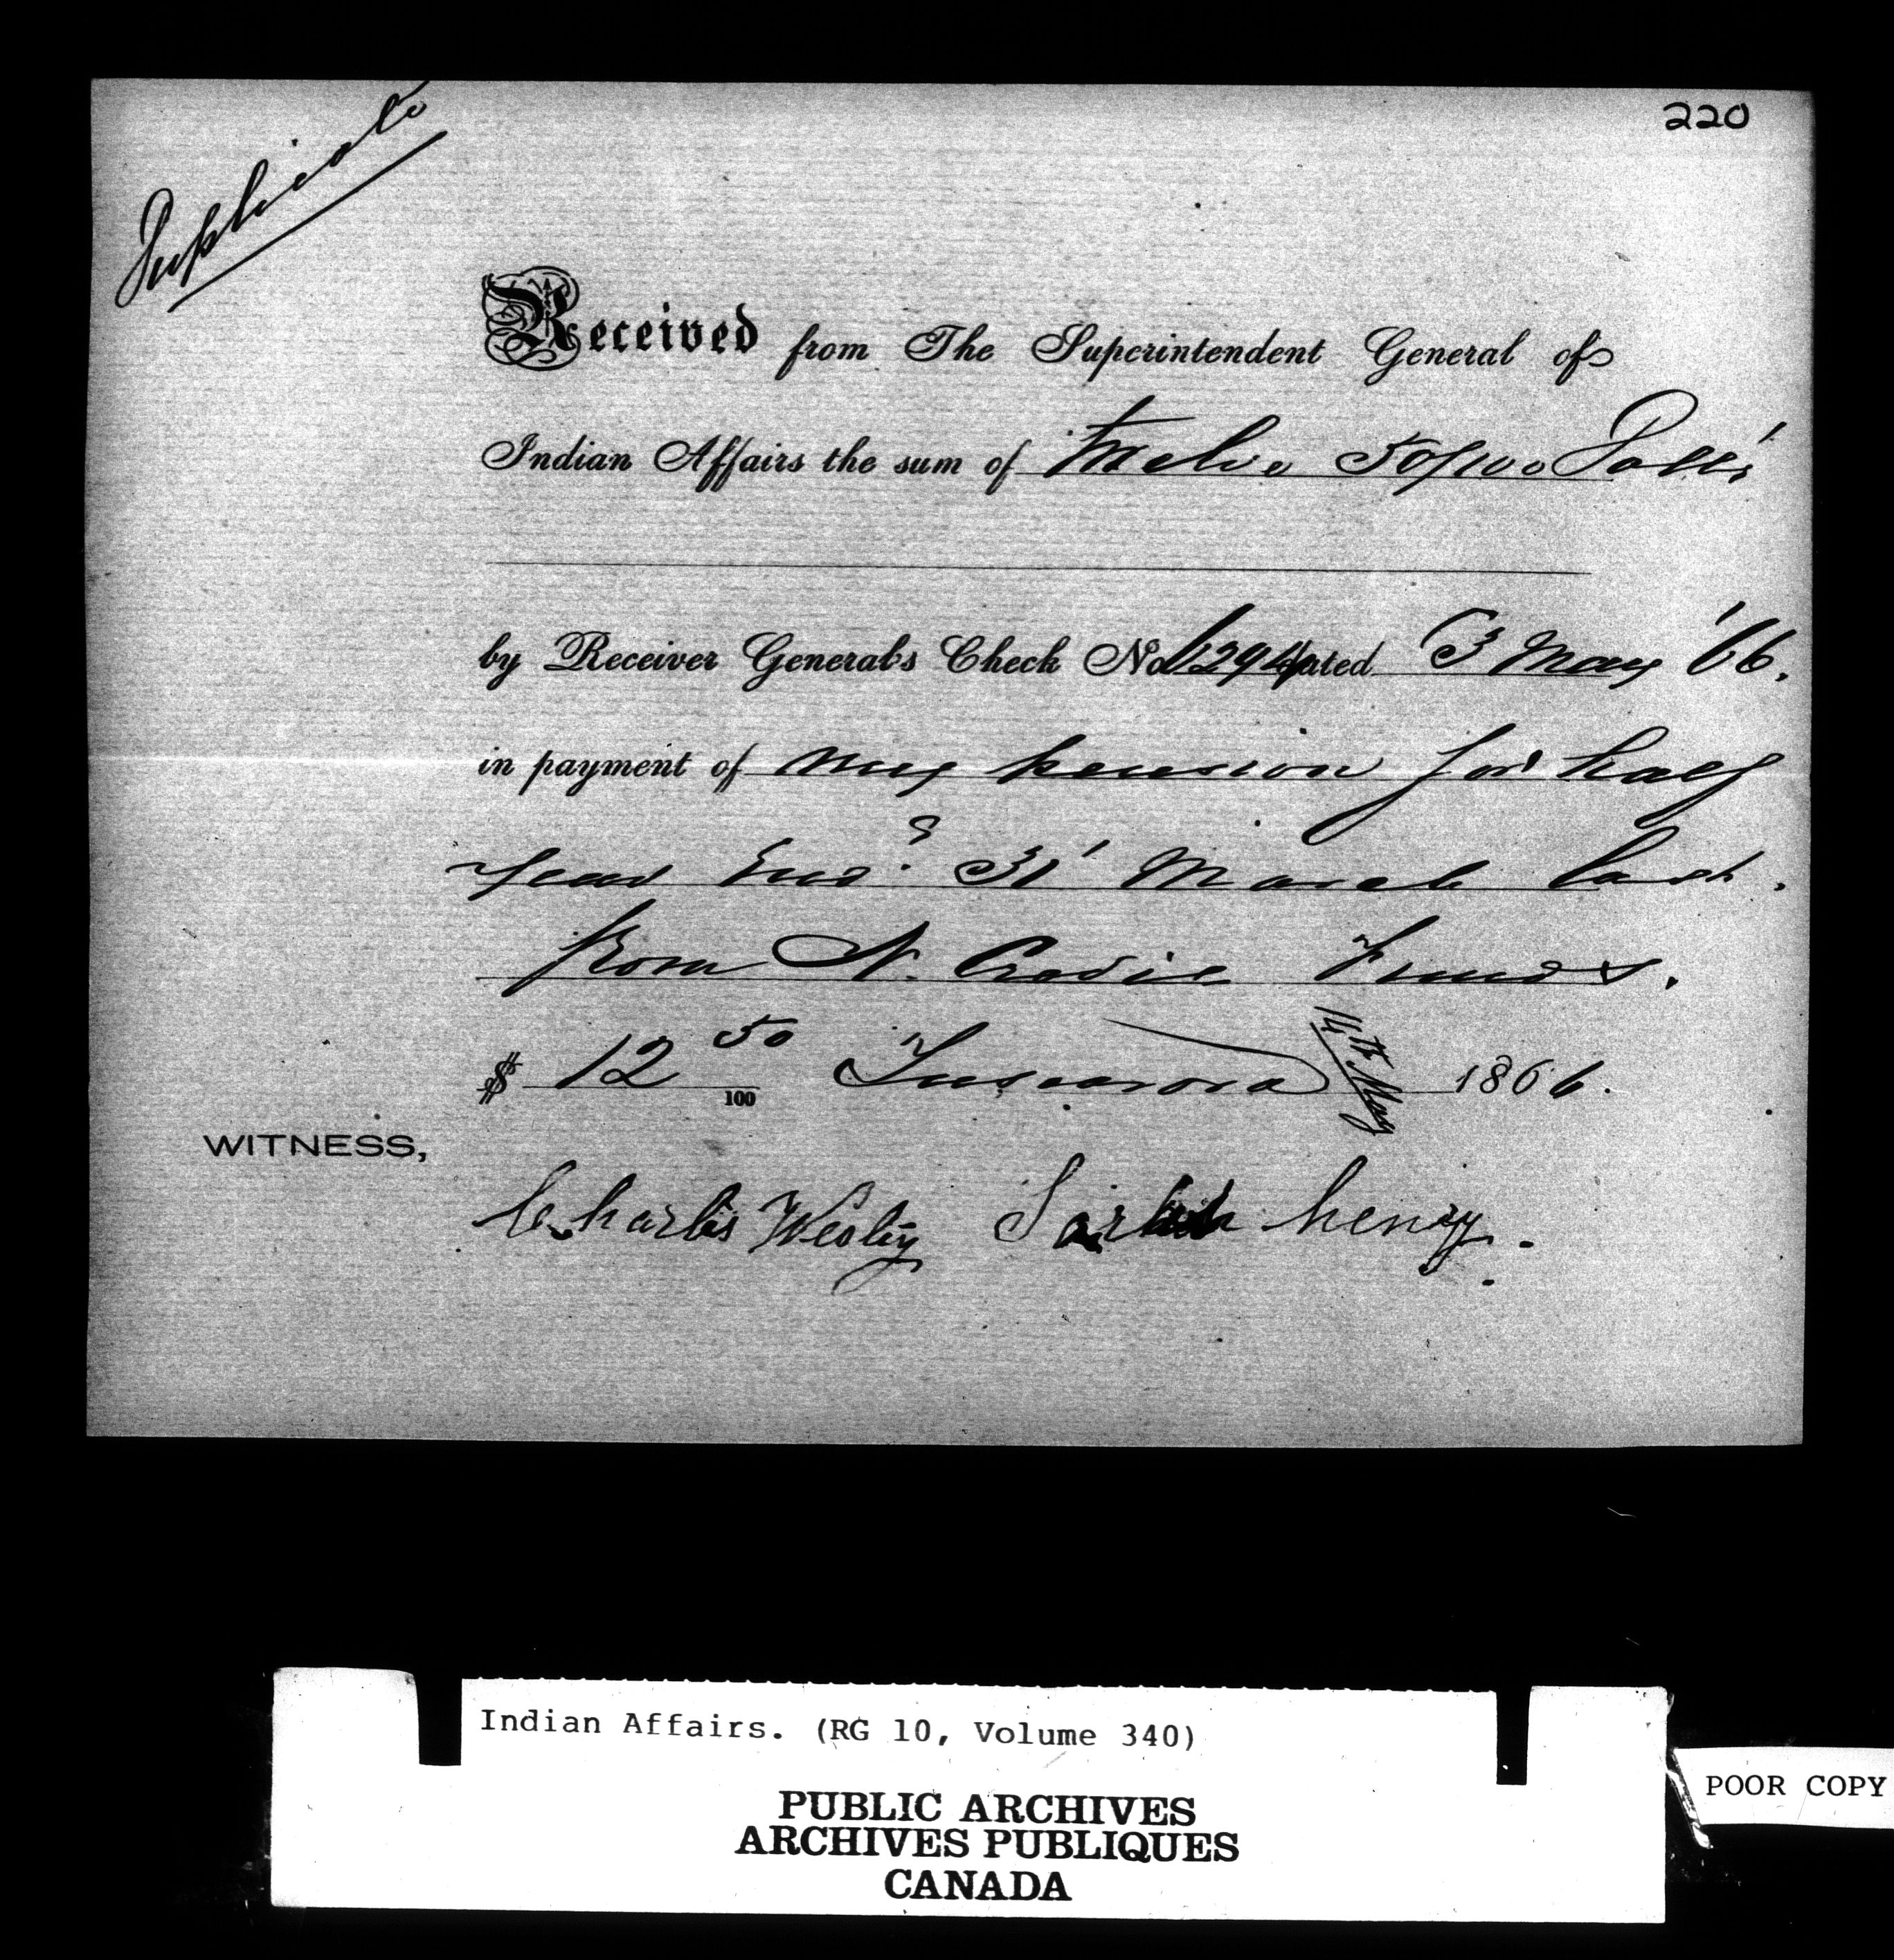 220
Duplicate
Received from The Superintendent General of
Indian Affairs the sum of Twelve 50/100 Doll's
by Receiver General's Check No 1294 dated 3 May '66.
in payment of my pension for half
year End.g 31' March last.
from N. Credit Funds.
$ 12 50/100 Tuscarora 14th May 1866.
WITNESS,
Charles Wesley Sarah henry.
Indian Affairs. (RG 10, Volume 340)
PUBLIC ARCHIVES
ARCHIVES PUBLIQUES
CANADA
POOR COPY